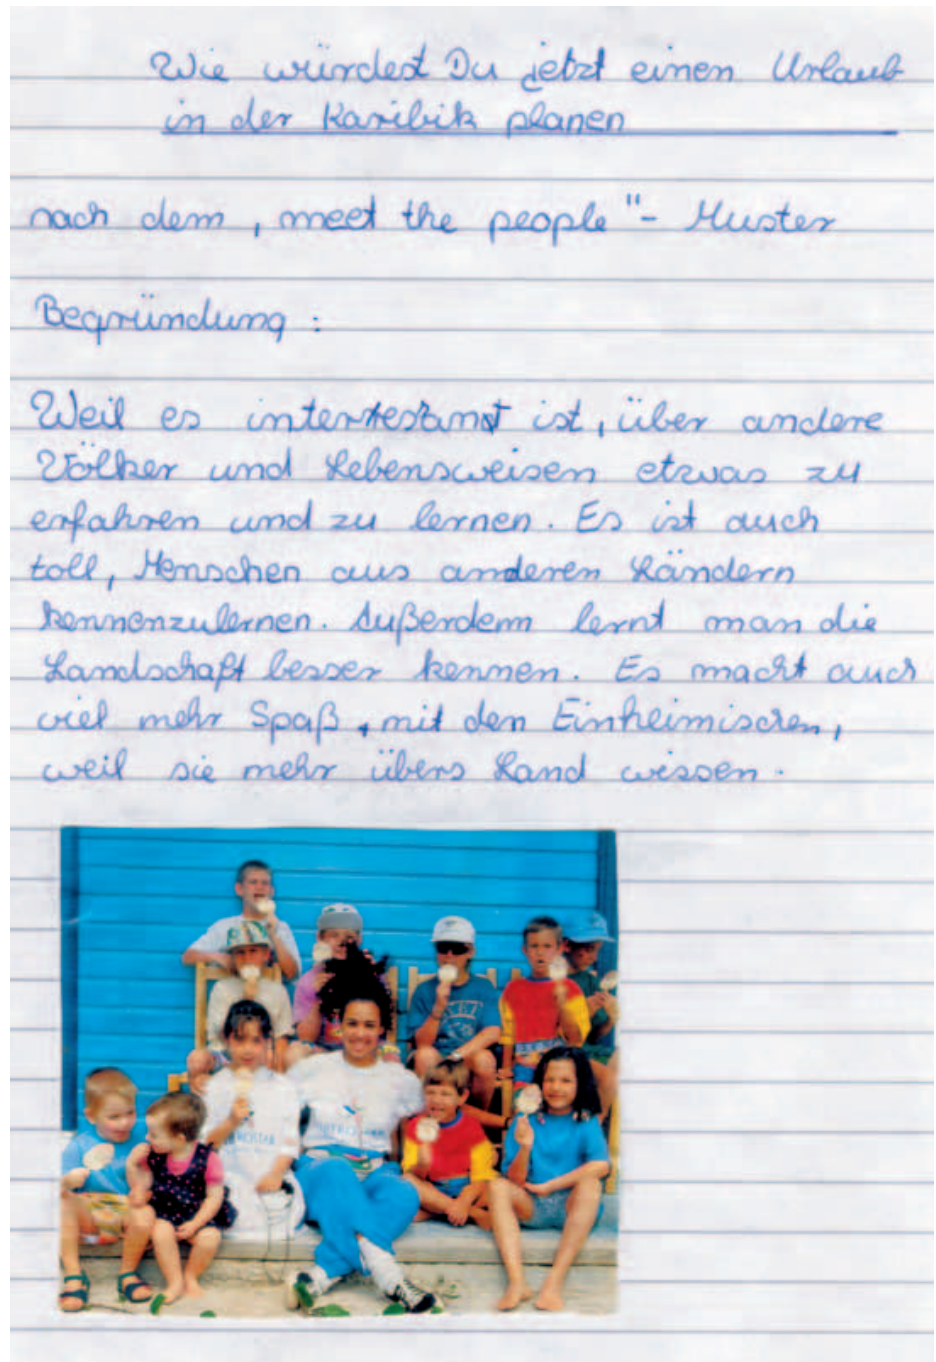 Wie würdest Du jetzt einen Urlaub
in der Karibik planen
nach dem „meet the people"- Muster
Begründung :
Weil es interresant ist, über andere
Völker und Lebensweisen etwas zu
erfahren und zu lernen. Es ist auch
toll, Menschen aus anderen Ländern
kennenzulernen. Außerdem lernt man die
Landschaft besser kennen. Es macht auch
viel mehr Spaß, mit den Einheimischen,
weil sie mehr übers Land wissen.